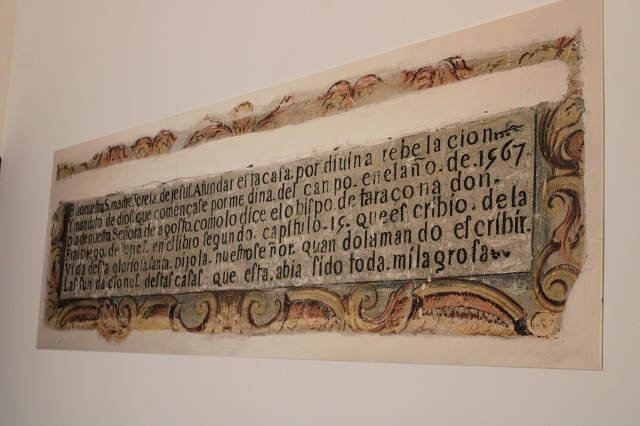 nuestra S. madre. Tereſa. de jeſuſ. A fundar eſta caſa. por diuina rebelacion
y mandato de dioſ. que començaſe por medina. del canpo. en el año. de. 1567.
Dia de nueſtra Señora de agoſto. como lo dice el obiſpo de taraçona don.
diego. de yepeſ. en el libro ſegundo. capítulo. 15. que eſcribio. de la
Vida deſta glorioſa ſanta. Dijo la. nueſtro ſeñor. quan do la man do eſcribir.
Laſ fun da cioneſ. deſtaſ caſaſ. que eſta. abia ſido toda. mila groſa